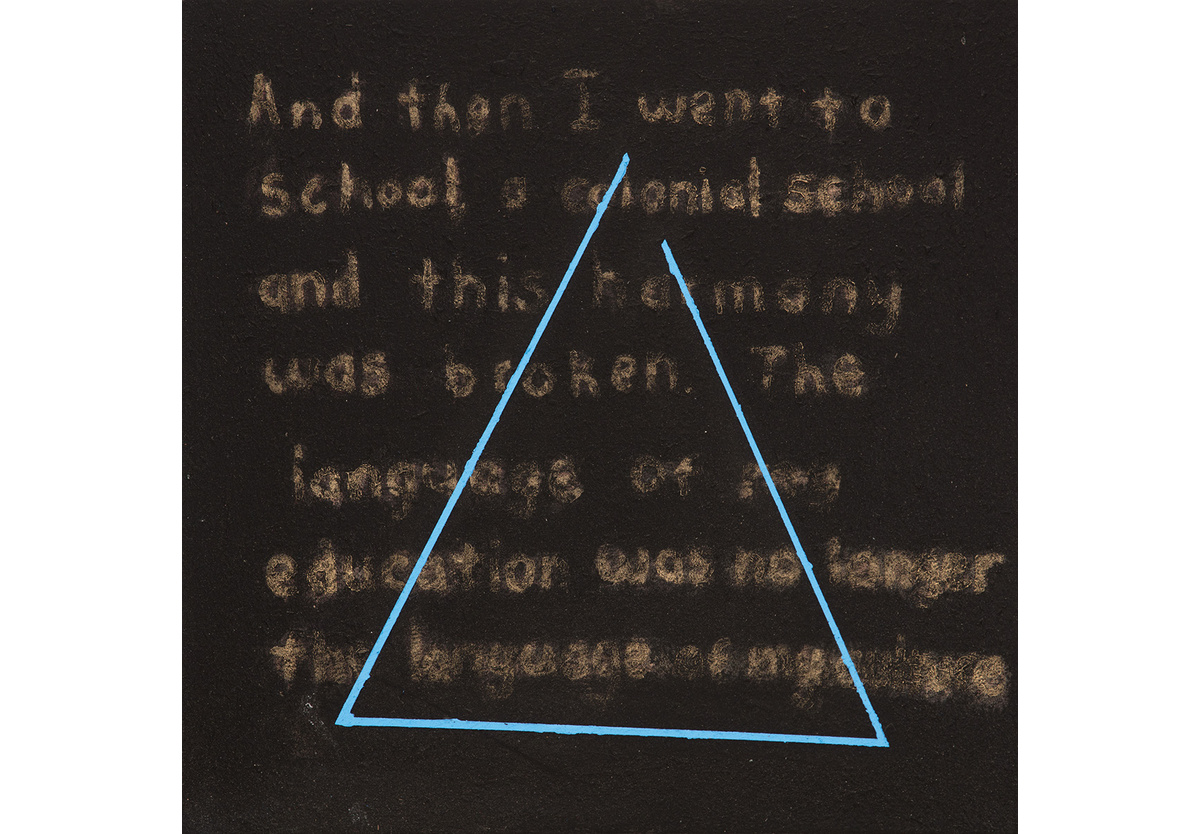 And then I went to
school, a colonial school
and this harmony
was broken. The
language of my
education was no longer
the language of my culture